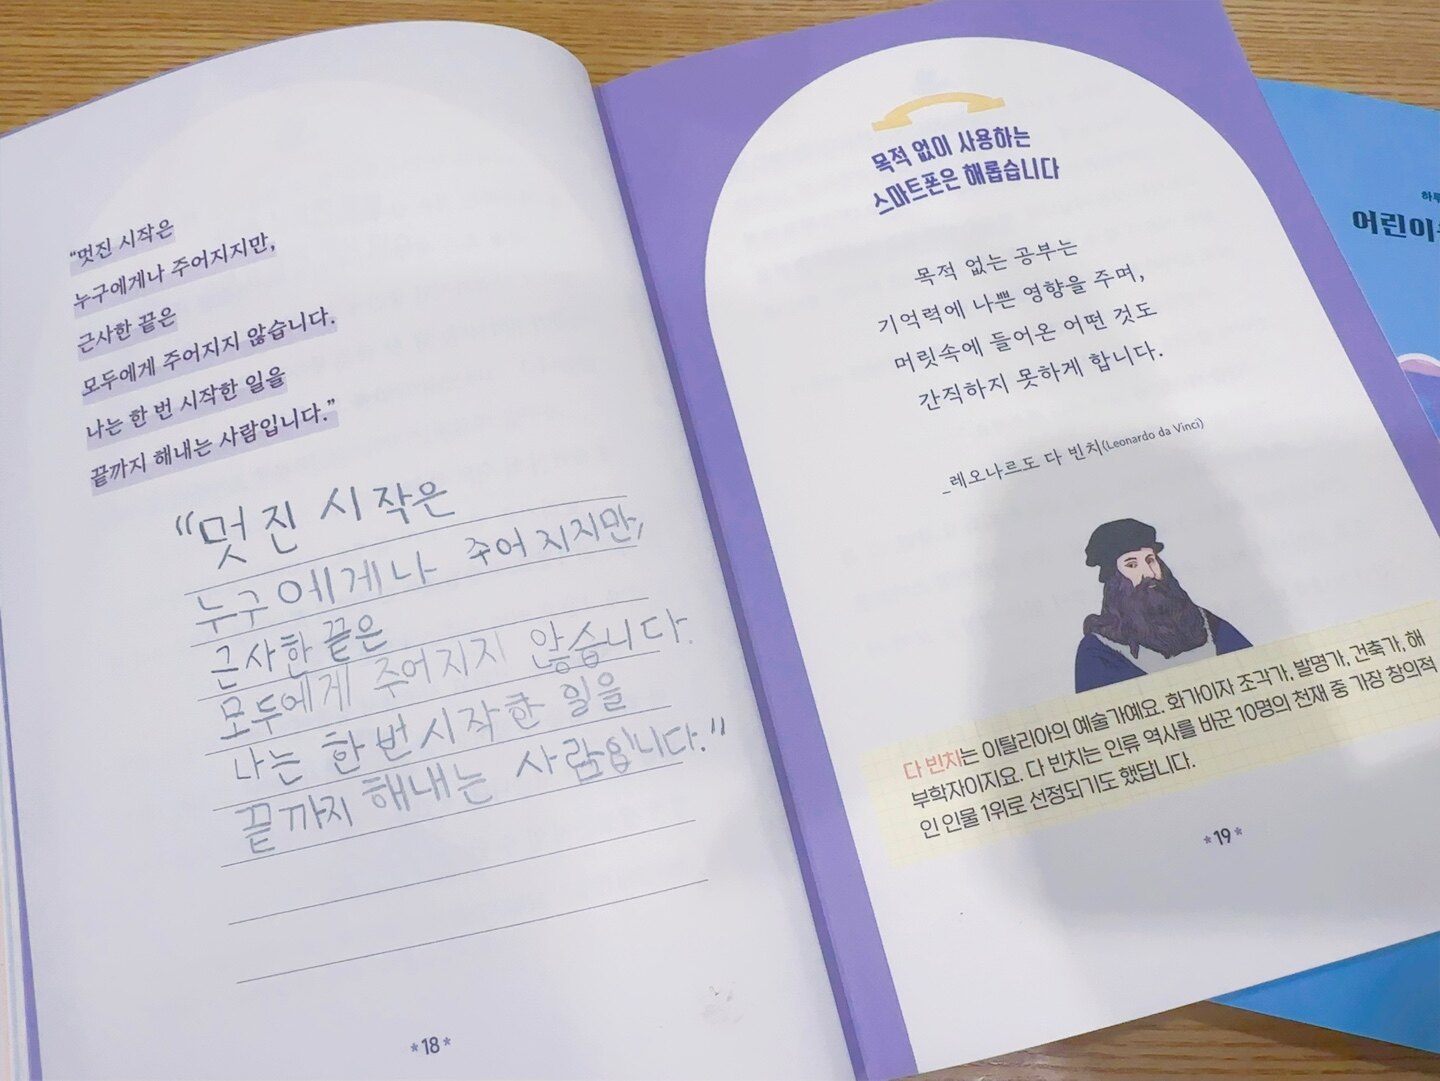 "멋진 시작은
누구에게나 주어지지만,
근사한 끝은
모두에게 주어지지 않습니다.
나는 한 번 시작한 일을
끝까지 해내는 사람입니다."
"멋진 시작은
누구에게나 주어지지만,
근사한 끝은
모두에게 주어지지 않습니다.
나는 한번 시작한 일을
끝까지 해내는 사람입니다."
*18*
목적 없이 사용하는
스마트폰은 해롭습니다
목적 없는 공부는
기억력에 나쁜 영향을 주며,
머릿속에 들어온 어떤 것도
간직하지 못하게 합니다.
_레오나르도 다 빈치(Leonardo da Vinci)
다 빈치는 이탈리아의 예술가예요. 화가이자 조각가, 발명가, 건축가, 해
부학자이지요. 다 빈치는 인류 역사를 바꾼 10명의 천재 중 가장 창의적
인 인물 1위로 선정되기도 했답니다.
*19*
어린이